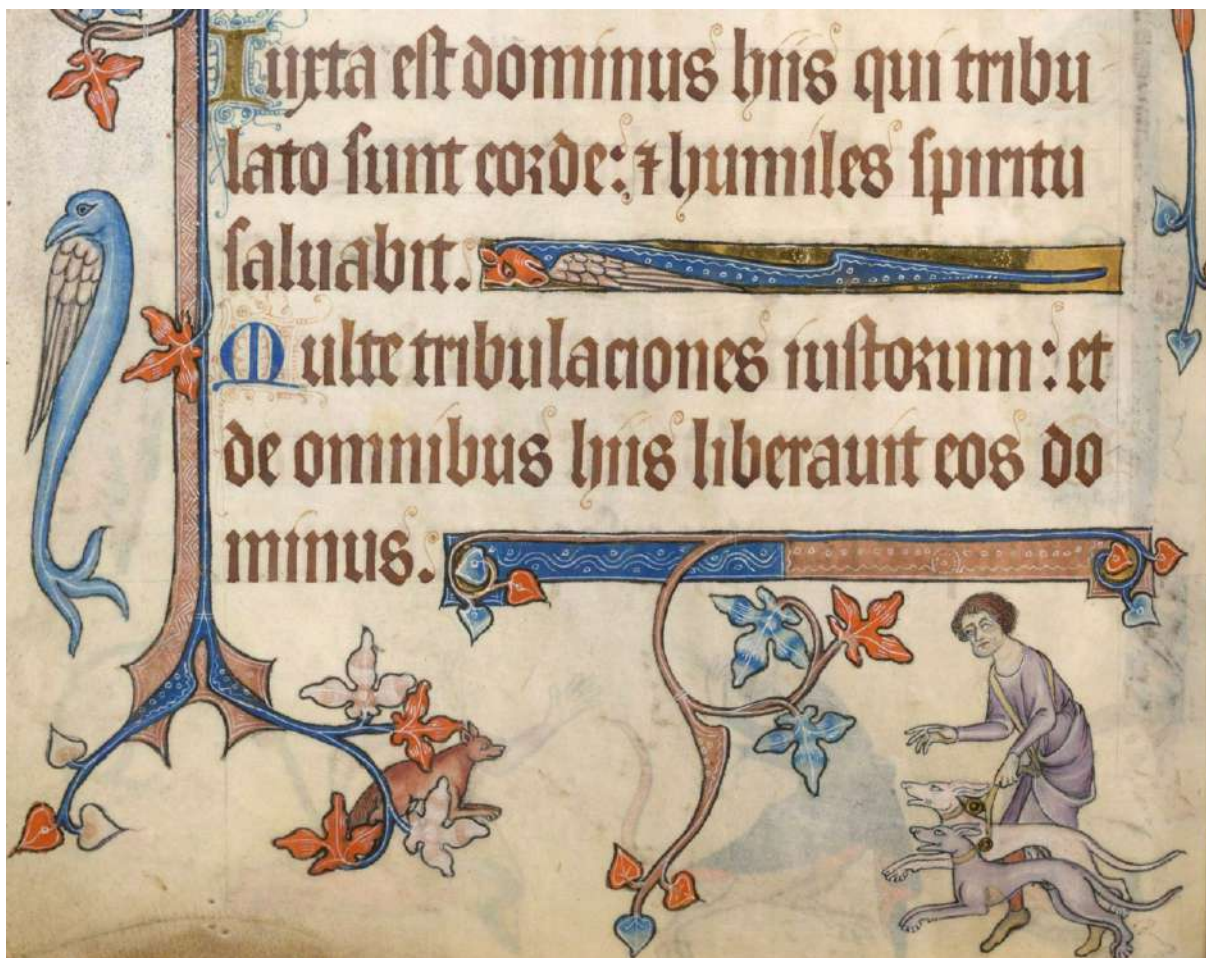 Iuxta est dominus hiis qui tribu
lato sunt corde: ⁊ humiles spiritu
saluabit.
Multe tribulaciones iustorum: et
de omnibus hiis liberauit eos do
minus.